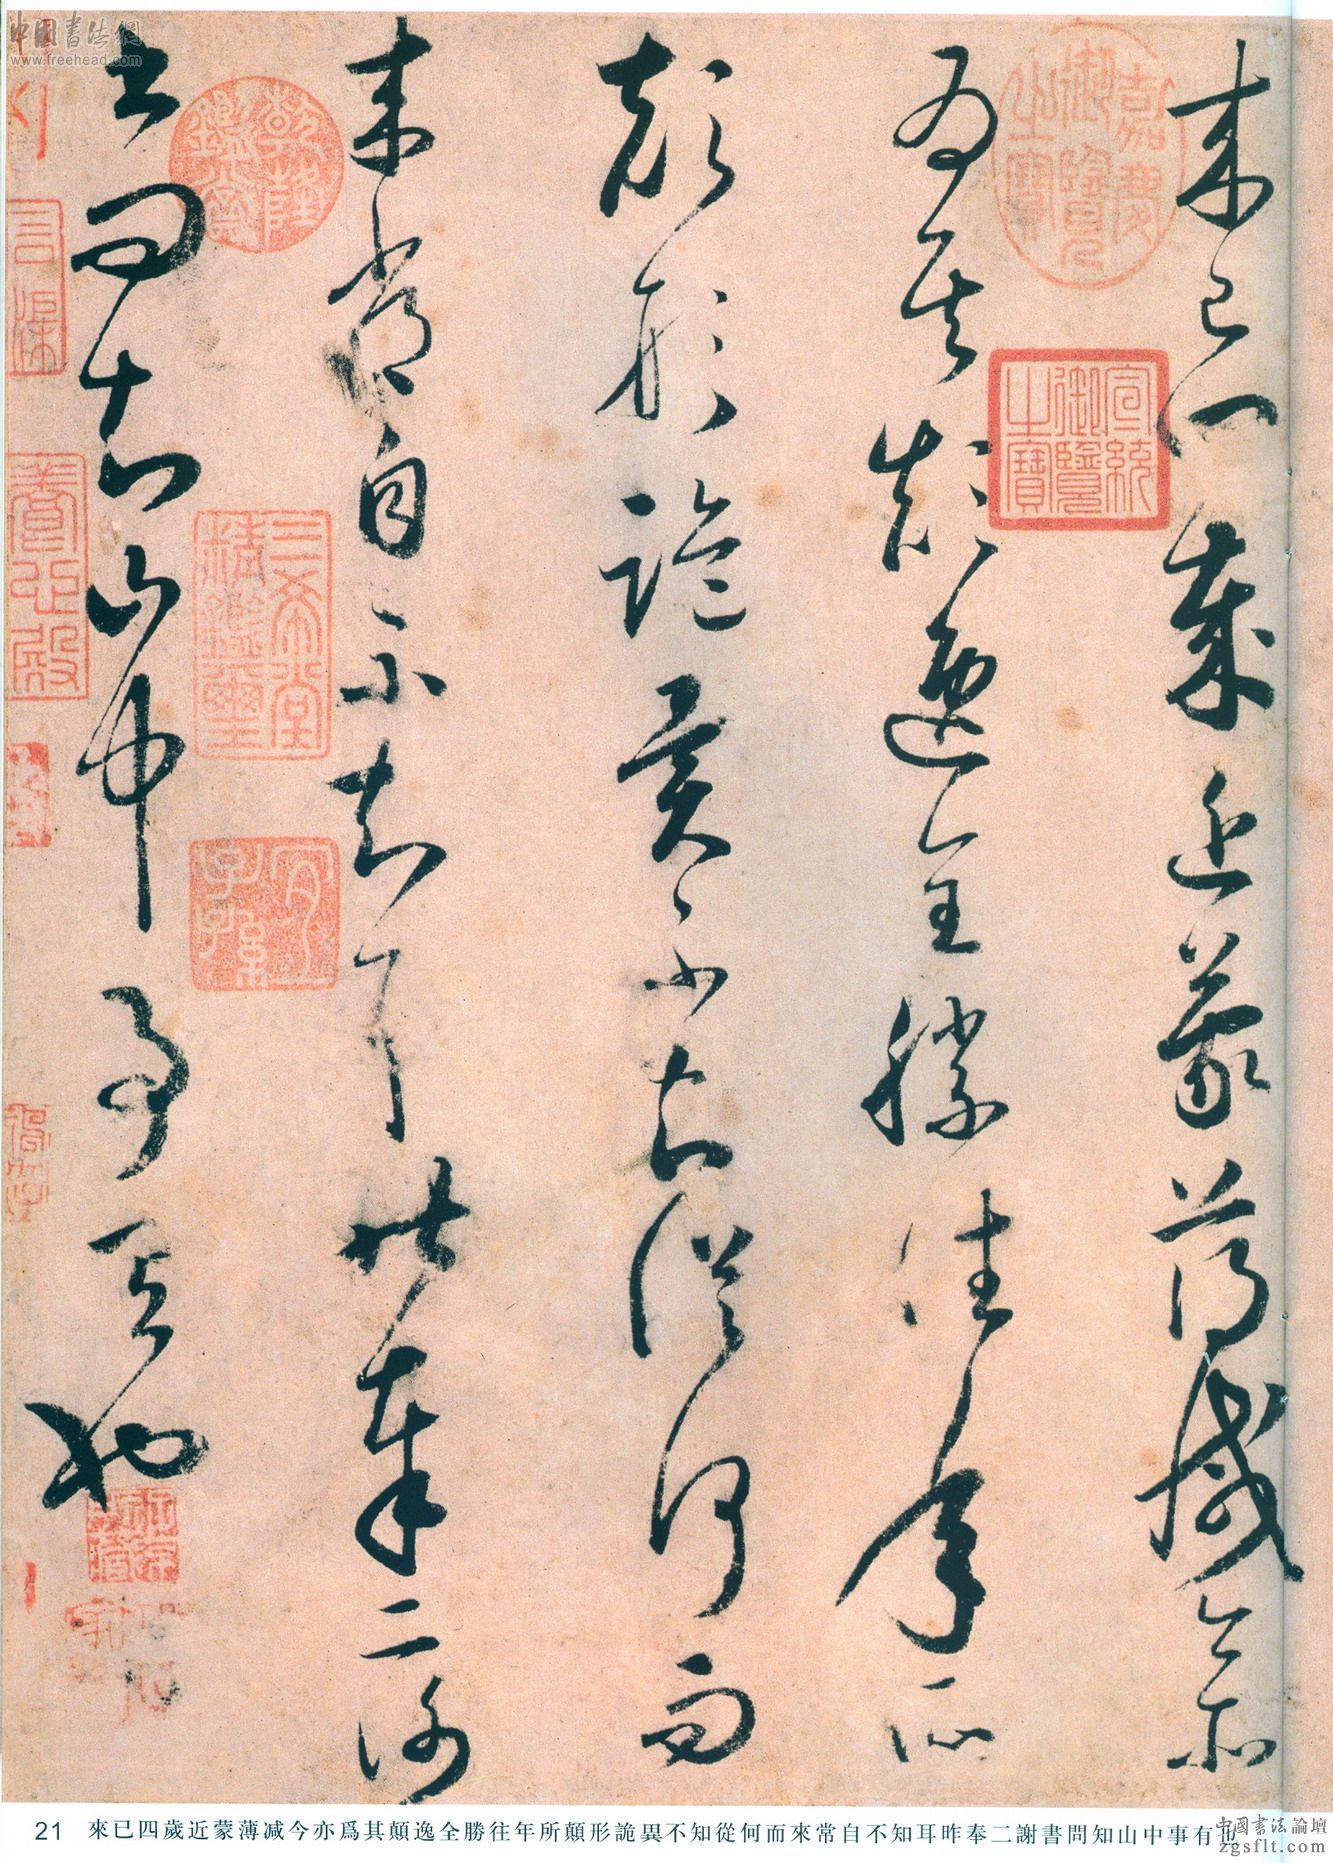 來已四歲近蒙薄減今亦
為其顛逸全勝往年所
顛形詭異不知從何而
來常自不知耳昨奉二謝
書問知山中事有也
嘉慶御覽之寶
宣統御覽之寶
乾隆鑑賞
三希堂精鑑璽
宜子孫
21 來已四歲近蒙薄减今亦爲其顛逸全勝往年所顛形詭異不知從何而來常自不知耳昨奉二謝書問知山中事有也
中國書法網
www.freehead.com
中国书法論壇
zgsflt.com